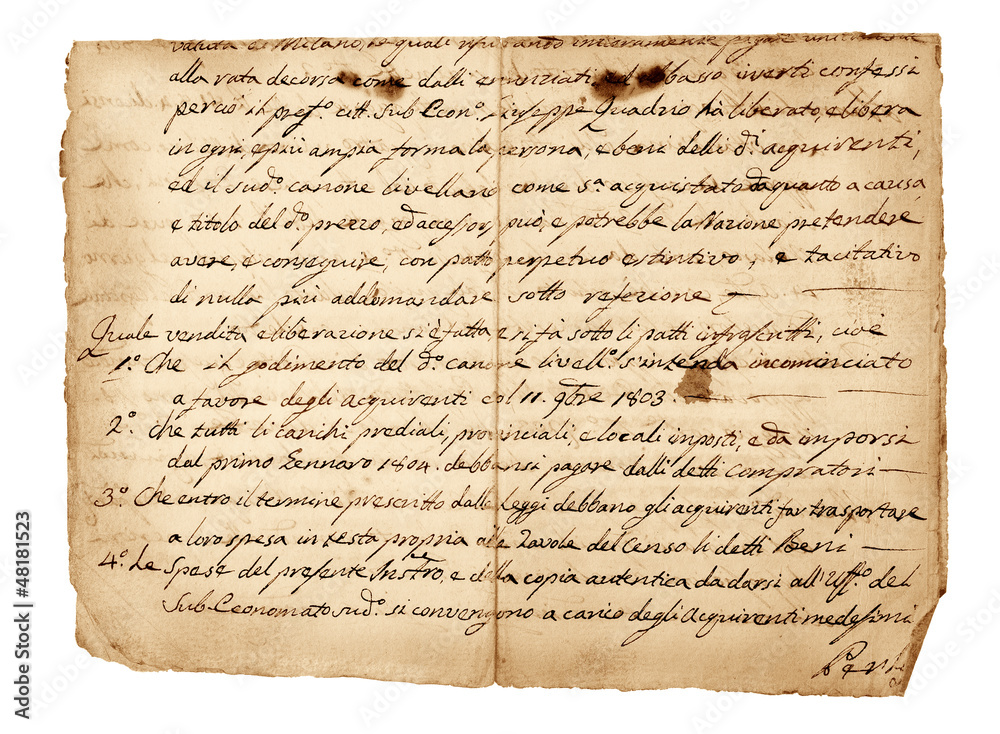 valuta di Milano, le quali
alla rata decorsa come dalli enunziati, ed abbasso inverti confessi
perciò il pref.º citt. Sub Econ.º Giuseppe Quadrio hà liberato, e libera
in ogni, e più ampia forma la persona, e beni delli d.i acquirenti,
ed il sud.º canone livellario come s.a acquistato da quanto a causa
e titolo del d.º prezzo, ed accessorj può, e potrebbe la Nazione pretendere
avere, e conseguire, con patto perpetuo estintivo, e tacitativo
di nulla più addomandare sotto refezione
Quale vendita e liberazione si è fatta, e si fà sotto li patti infrascritti, cioè
1.º Che il godimento del d.º canone livell.º s'intenda incominciato
a favore degli acquirenti col 11. 9bre 1803.
2.º Che tutti li carichi prediali, provinciali, e locali imposti, e da imporsi
dal primo Gennaro 1804. debbansi pagare dalli detti compratori
3.º Che entro il termine prescritto dalle Leggi debbano gli acquirenti far trasportare
a loro spesa in testa propria alle Tavole del Censo li detti Beni
4.º Le Spese del presente Instro, e della copia autentica da darsi all'Uff.º del
Sub Economato sud.º si convengono a carico degli Acquirenti medesimi
Adobe Stock | #48181523